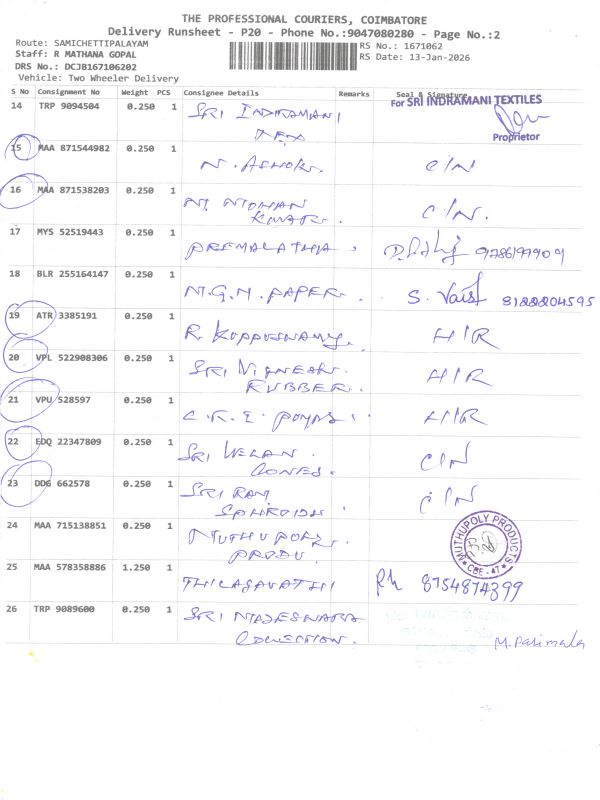 THE PROFESSIONAL COURIERS, COIMBATORE
Delivery Runsheet - P20 - Phone No.:9047080280 - Page No.:2
Route: SAMICHETTIPALAYAM
Staff: R MATHANA GOPAL
RS No.: 1671062
DRS No.: DCJB167106202
RS Date: 13-Jan-2026
Vehicle: Two Wheeler Delivery
S No Consignment No Weight PCS Consignee Details Remarks Seal & Signature
14 TRP 9094504 0.250 1 SRI INDIRAMANI For SRI INDRAMANI TEXTILES
TEX
Proprietor
15 MAA 871544982 0.250 1
N. ASHOK. C/N
16 MAA 871538203 0.250 1
N. MOHAN
KUMAR. C/N.
17 MYS 52519443 0.250 1
PREMALATHA
18 BLR 255164147 0.250 1
N.G.M. PAPER. S. 8122204595
19 ATR 3385191 0.250 1
R. KUPPUSWAMY. H/R
20 VPL 522908306 0.250 1 SRI VIGNESH.
RUBBER. H/R
21 VPU 528597 0.250 1
C.R.E. H/R
22 EDQ 22347809 0.250 1 SRI VELAN.
CONES. C/N
23 DDG 662578 0.250 1
SRI RAM C/N
24 MAA 715138851 0.250 1
MUTHU POLY
PRODU. MUTHUPOLY PRODUCTS
CBE - 47
25 MAA 578358886 1.250 1
THILAGAVATHI Ph 8754874399
26 TRP 9089600 0.250 1
SRI
COLLECTION. M. Parimala